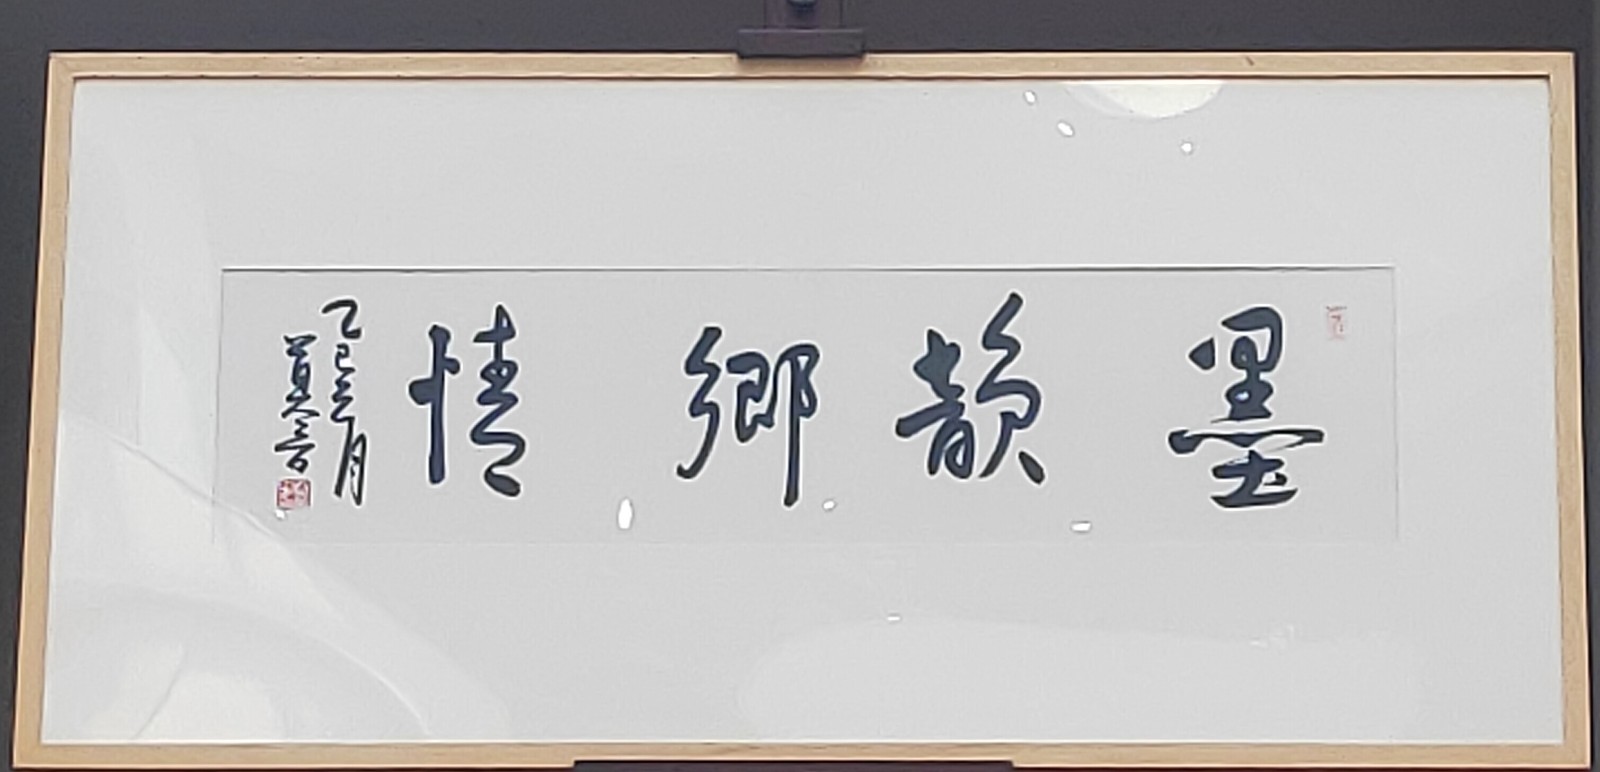 墨韻鄉情
乙巳三月